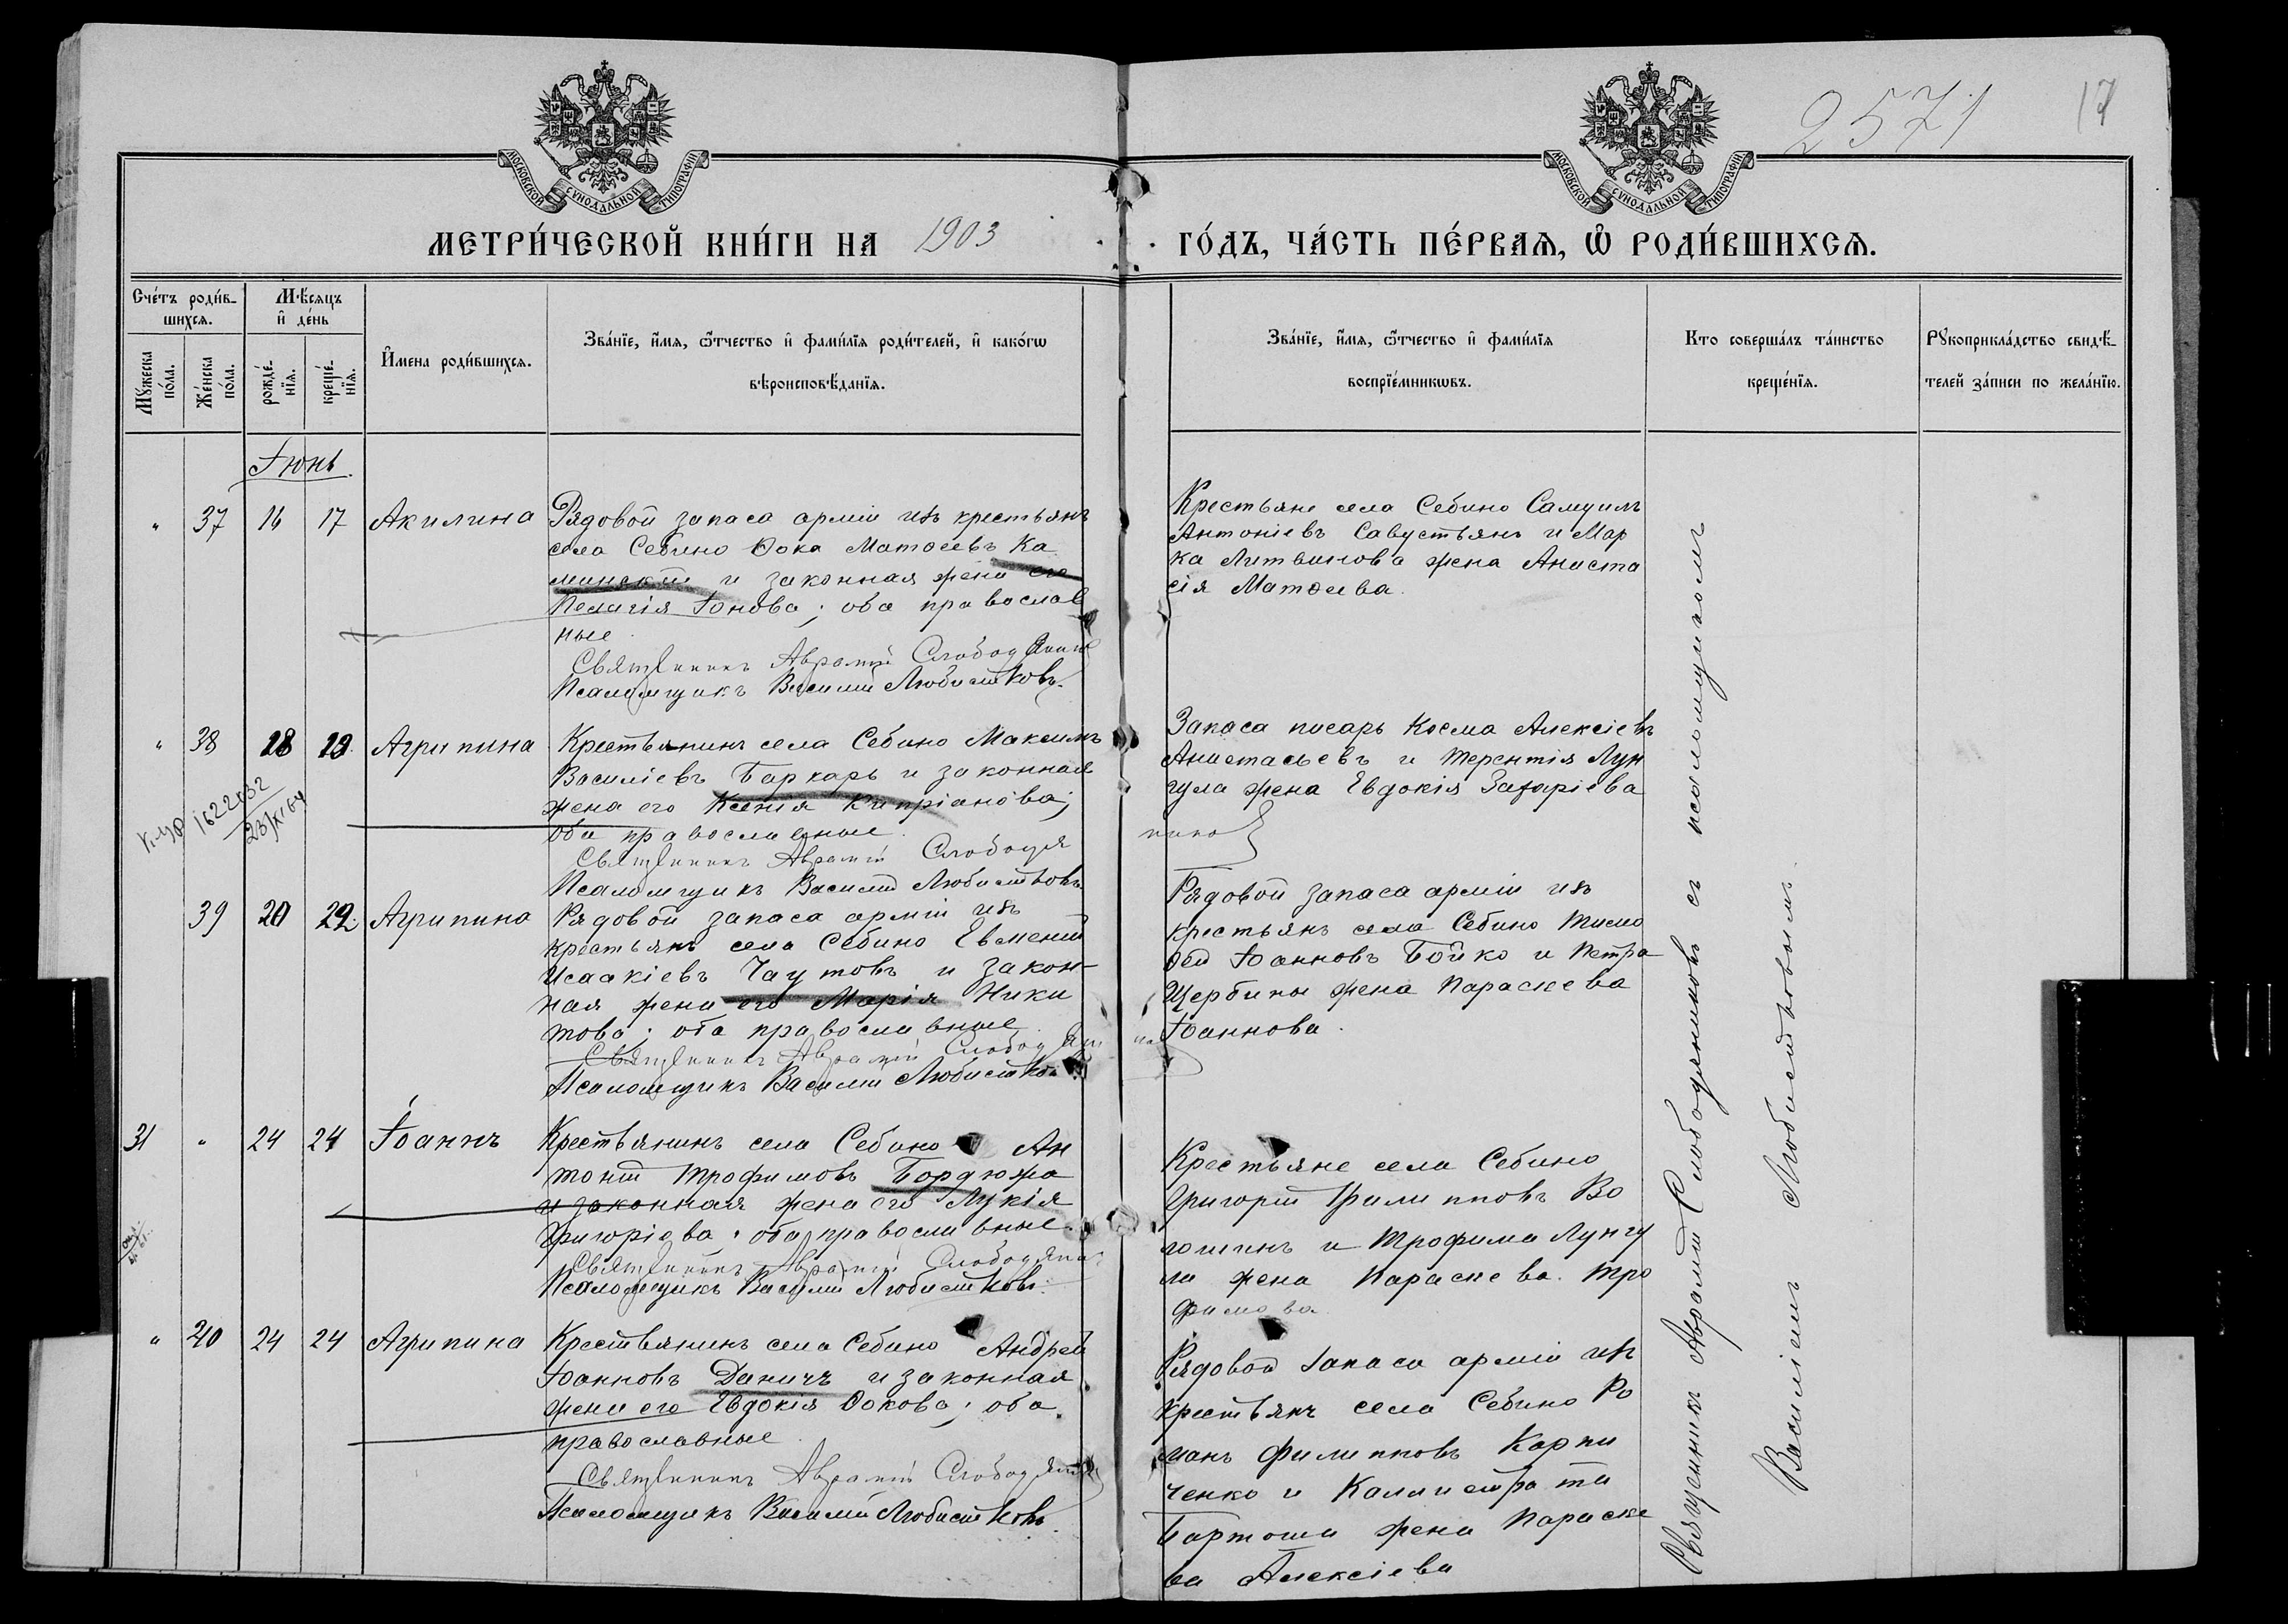 2571
17
МОСКОВСКОЙ СУНОДАЛЬНОЙ ТИПОГРАФІИ
МОСКОВСКОЙ СУНОДАЛЬНОЙ ТИПОГРАФІИ
МЕТРИ́ЧЕСКОЙ КНИ́ГИ НА 1903 ГО́ДЪ, ЧА́СТЬ ПЕ́РВАѦ, Ѡ҆ РОДИ́ВШИХСѦ.
Сче́тъ роди́в-
шихсѧ.
Мѣ́сѧцъ
и҆ де́нь
Мꙋ́жеска
по́ла.
Же́нска
по́ла.
рожде́-
нїѧ.
креще́-
нїѧ.
И҆мена роди́вшихсѧ.
Зва́нїе, и҆́мѧ, ѻ҆́тчество и҆ фами́лїѧ роди́телей, и҆ како́гѡ
вѣроисповѣ́данїѧ.
Зва́нїе, и҆́мѧ, ѻ҆́тчество и҆ фами́лїѧ
воспрїе́мникѡвъ.
Кто соверша́лъ та́инство
креще́нїѧ.
Рꙋкоприкла́дство свидѣ́-
телей за́писи по жела́нїю.
Іюнь.
" 37 16 17 Акилина
Рядовой запаса арміи изъ крестьянъ
села Себино Ѳока Матѳеевъ Ка
минскій и законная жена его
Пелагія Іонова; оба православ
ные.
Священникъ Аврамій Слободяник
Псаломщикъ Василій Любистковъ.
Крестьяне села Себино Самуилъ
Антоніевъ Савустьянъ и Мар
ка Литвинова жена Анаста
сія Матѳеева.
" 38 18 19. Агрипина
Крестьянинъ села Себино Максимъ
Василіевъ Баркарь и законная
жена его Ксенія Кипріанова;
оба православные.
Священникъ Аврамій Слободя
ников
Псаломщикъ Василій Любистковъ.
1622032
23/XI 64
Запаса писарь Косма Алексіевъ
Анастасьевъ и Терентія Лун
гула жена Евдокія Захаріева
39 20 22. Агрипина
Рядовой запаса арміи изъ
крестьянъ села Себино Евменій
Исаакіевъ Чаутовъ и закон-
ная жена его Марія Ники
това; оба православные.
Священникъ Аврамій Слободян
Псаломщикъ Василій Любистков
Рядовой запаса арміи изъ
крестьянъ села Себино Тимо
ѳей Іоанновъ Бойко и Петра
Щербины жена Параскева
Іоаннова.
31 " 24 24 Іоаннъ
Крестьянинъ села Себино Ан
тоній Трофимовъ Бордюжа
и законная жена его Лукія
Григоріева; оба православные.
Священникъ Аврамій Слободяни
Псаломщикъ Василій Любистковъ.
Крестьяне села Себино
Григорій Филипповъ Во
лошинъ и Трофима Лунгу
ла жена Параскева Тро
фимова.
" 40 24 24 Агрипина
Крестьянинъ села Себино Андрей
Іоанновъ Даничъ и законная
жена его Евдокія Ѳокова; оба
православные.
Священникъ Аврамій Слободяник
Псаломщикъ Василій Любистковъ.
Рядовой запаса арміи изъ
крестьянъ села Себино Ро
манъ Филипповъ Карпи
ченко и Каллистрата
Бартоша жена Параске
ва Алексіева
Священникъ Аврамій Слободяниковъ съ псаломщикомъ
Василіемъ Любистковымъ.